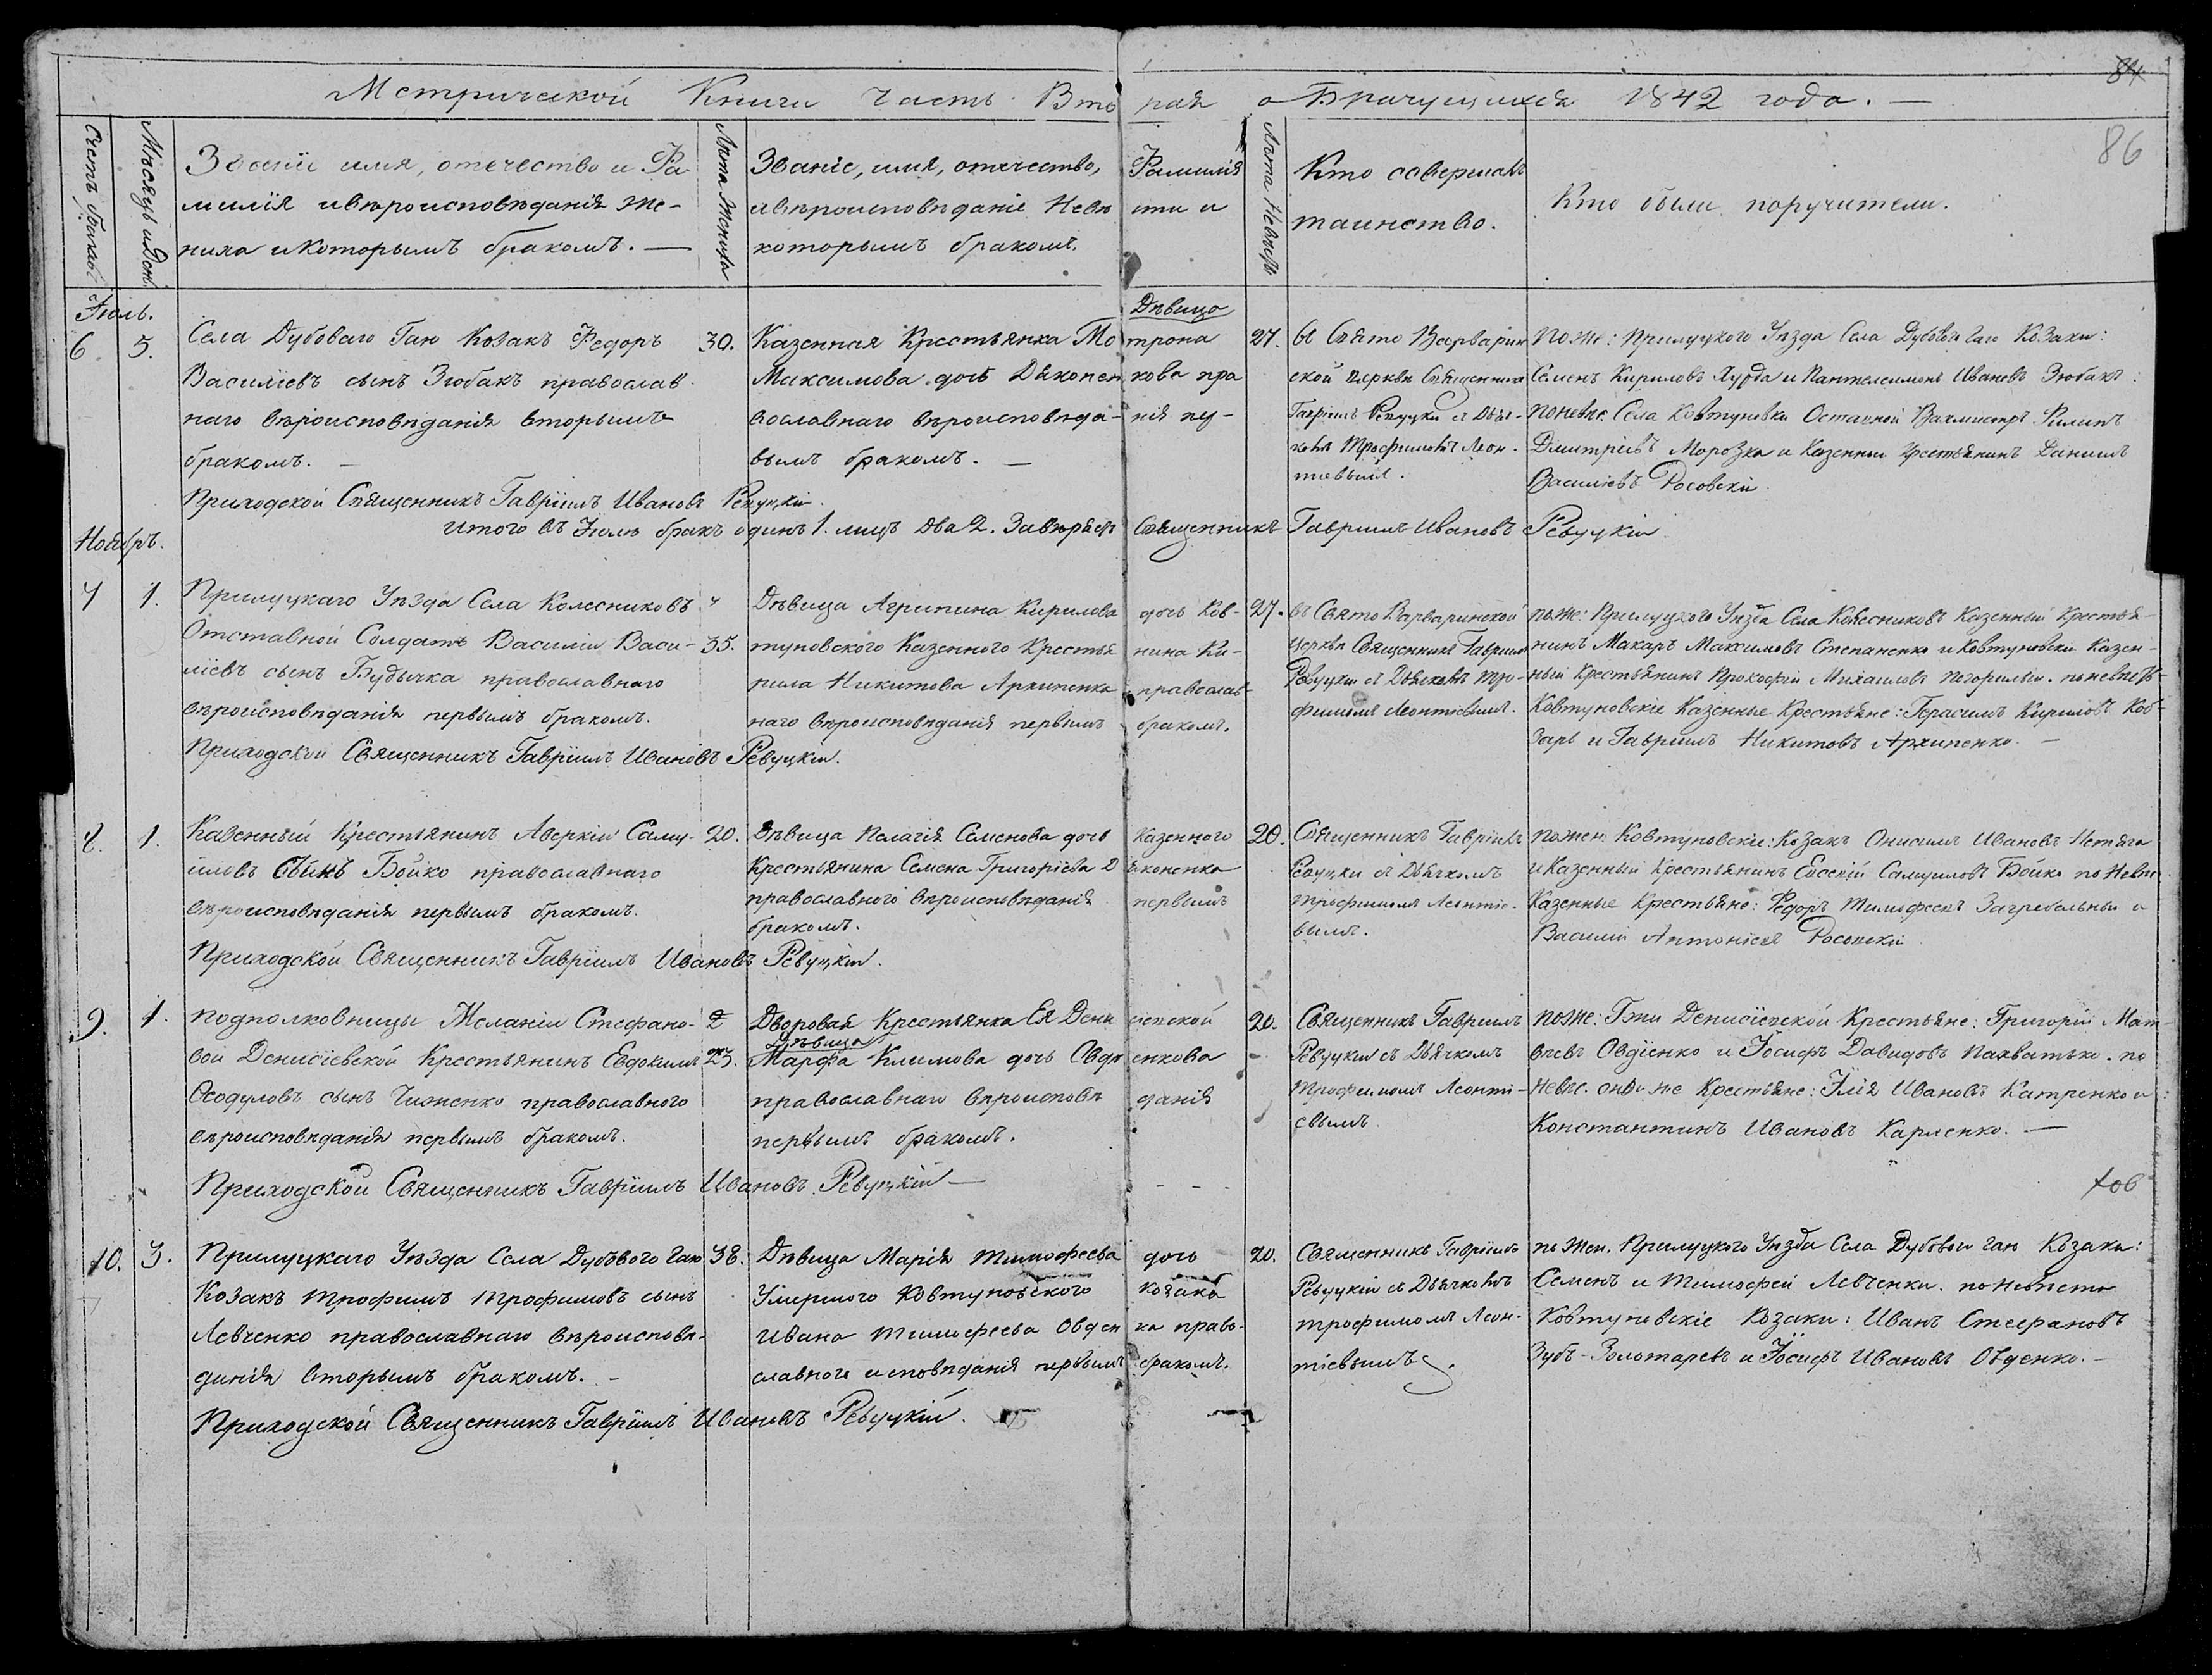 84
Метрической Книги Часть Вторая о Брачущихся 1842 года. —
86
Счетъ браковъ
Мѣсяцъ и День
Званіе имя, отечество и Фа
милія и вѣроисповѣданія же-
ниха и которымъ бракомъ. —
Лѣта Жениха
Званіе, имя, отечество, Фамилія
и вѣроисповѣданіе Невѣсти и
которымъ бракомъ.
Лѣта Невѣсты
Кто совершалъ
таинство.
Кто были поручители.
Іюль.
6 5.
Села Дубоваго Гаю Козакъ Федоръ
Василіевъ сынъ Зюбакъ православ
наго вѣроисповѣданія вторымъ
бракомъ. —
30.
Дѣвица
Казенная Крестьянка Мотрона
Максимова дочь Дяконенкова пра
вославнаго вѣроисповѣданія пер-
вымъ бракомъ. —
27.
въ Свято Варварин
ской церкви Священникъ
Гавріилъ Ревуцкій съ Дьяч-
комъ Трофимомъ Леон-
тіевымъ.
по же: Прилуцкого Уѣзда Села Дубового Гаю Козаки:
Семенъ Кириловъ Худа и Пантелеимонъ Ивановъ Зюбакъ:
по невѣс. Села Ковтуновки Отставной Вахмистръ Филипъ
Дмитріевъ Морозка и Казенный Крестьянинъ Данилъ
Василіевъ Росовскій
Приходской Священникъ Гавріилъ Ивановъ Ревуцкій.
Итого въ Іюлѣ бракъ одинъ 1. лицъ два 2. Завѣряетъ Священникъ Гавріилъ Ивановъ Ревуцкій
Ноябръ.
7 1.
Прилуцкаго Уѣзда Села Колесниковъ
Отставной Солдатъ Василій Васи-
ліевъ сынъ Будычка православнаго
вѣроисповѣданія первымъ бракомъ.
35.
Дѣвица Агрипина Кирилова дочь Ков-
туновского Казенного Крестьянина Ки-
рила Никитова Архипенка православ-
наго вѣроисповѣданія первымъ бракомъ.
27.
въ Свято Варваринской
Церкви Священникъ Гавріилъ
Ревуцкій съ Дьячкомъ Тро-
фимомъ Леонтіевымъ.
по же: Прилуцкого Уѣзда Села Колесниковъ Казенный Крестья-
нинъ Макаръ Максимовъ Степаненко и Ковтуновски Казен-
ный Крестьянинъ Прокофій Михаиловъ Погорилый. по невѣстѣ-
Ковтуновскіе Казенные Крестьяне: Герасимъ Кириловъ Коб-
заръ и Гавріилъ Никитовъ Архипенко. —
Приходской Священникъ Гавріилъ Ивановъ Ревуцкій.
8. 1.
Казенный Крестьянинъ Аверкій Саму-
иловъ Сынъ Бойко православнаго
вѣроисповѣданія первымъ бракомъ.
20.
Дѣвица Пелагія Семенова дочь Казенного
Крестьянина Семена Григоріева Дяконенка
православного вѣроисповѣданія первымъ
бракомъ.
20.
Священникъ Гавріилъ
Ревуцки съ Дьячкомъ
Трофимомъ Леонтіе-
вымъ.
по жен: Ковтуновскіе: Козакъ Онисимъ Ивановъ Нетяга
и Казенный Крестьянинъ Евсевій Самуиловъ Бойко по Невѣс
Казенные Крестьяне: Федоръ Тимофеевъ Загребельны и
Василій Антоніевъ Росовскій
Приходской Священникъ Гавріилъ Ивановъ Ревуцкій.
9. 1.
Подполковницы Меланіи Стефано-
вой Денисіевской Крестьянинъ Евдокимъ
Феодуловъ сынъ Чиженко православного
вѣроисповѣданія первымъ бракомъ.
23.
Дворовая Крестьянка Ея Денисіевской
Дѣвица
Марфа Климова дочь Овдіенкова
православнаго вѣроисповѣданія
первымъ бракомъ.
20.
Священникъ Гавріилъ
Ревуцкій съ Дьячкомъ
Трофимомъ Леонті-
евымъ.
по же. Гжи Денисіевской Крестьяне: Григорій Мат-
вѣевъ Овдіенко и Іосифъ Давидовъ Пахватько. по
невѣс. онѣ же Крестьяне: Илія Ивановъ Катренко и:
Константинъ Ивановъ Карпенко. —
Приходской Священникъ Гавріилъ Ивановъ Ревуцкій —
10. 3.
Прилуцкаго Уѣзда Села Дубового Гаю
Козакъ Трофимъ Трофимовъ сынъ
Левченко православнаго вѣроисповѣ-
данія вторымъ бракомъ. —
38.
Дѣвица Марія Тимофеева дочь
Умершого Ковтуновского Козака
Ивана Тимофеева Овденка право-
славного исповѣданія первымъ бракомъ.
20.
Священникъ Гавріилъ
Ревуцкій съ Дьячкомъ
Трофимомъ Леон-
тіевымъ.
по Жен. Прилуцкого Уѣзда Села Дубового Гаю Козаки:
Семенъ и Тимофей Левченки. по невѣстѣ
Ковтуновскіе Козаки: Иванъ Стефановъ
Зубъ-Золотаревъ и Іосифъ Ивановъ Овденко. —
Приходской Священникъ Гавріилъ Ивановъ Ревуцкій.